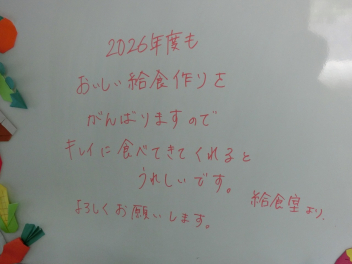 2026年度も
おいしい給食作りを
がんばりますので
キレイに食べてきてくれると
うれしいです。
給食室より
よろしくお願いします。